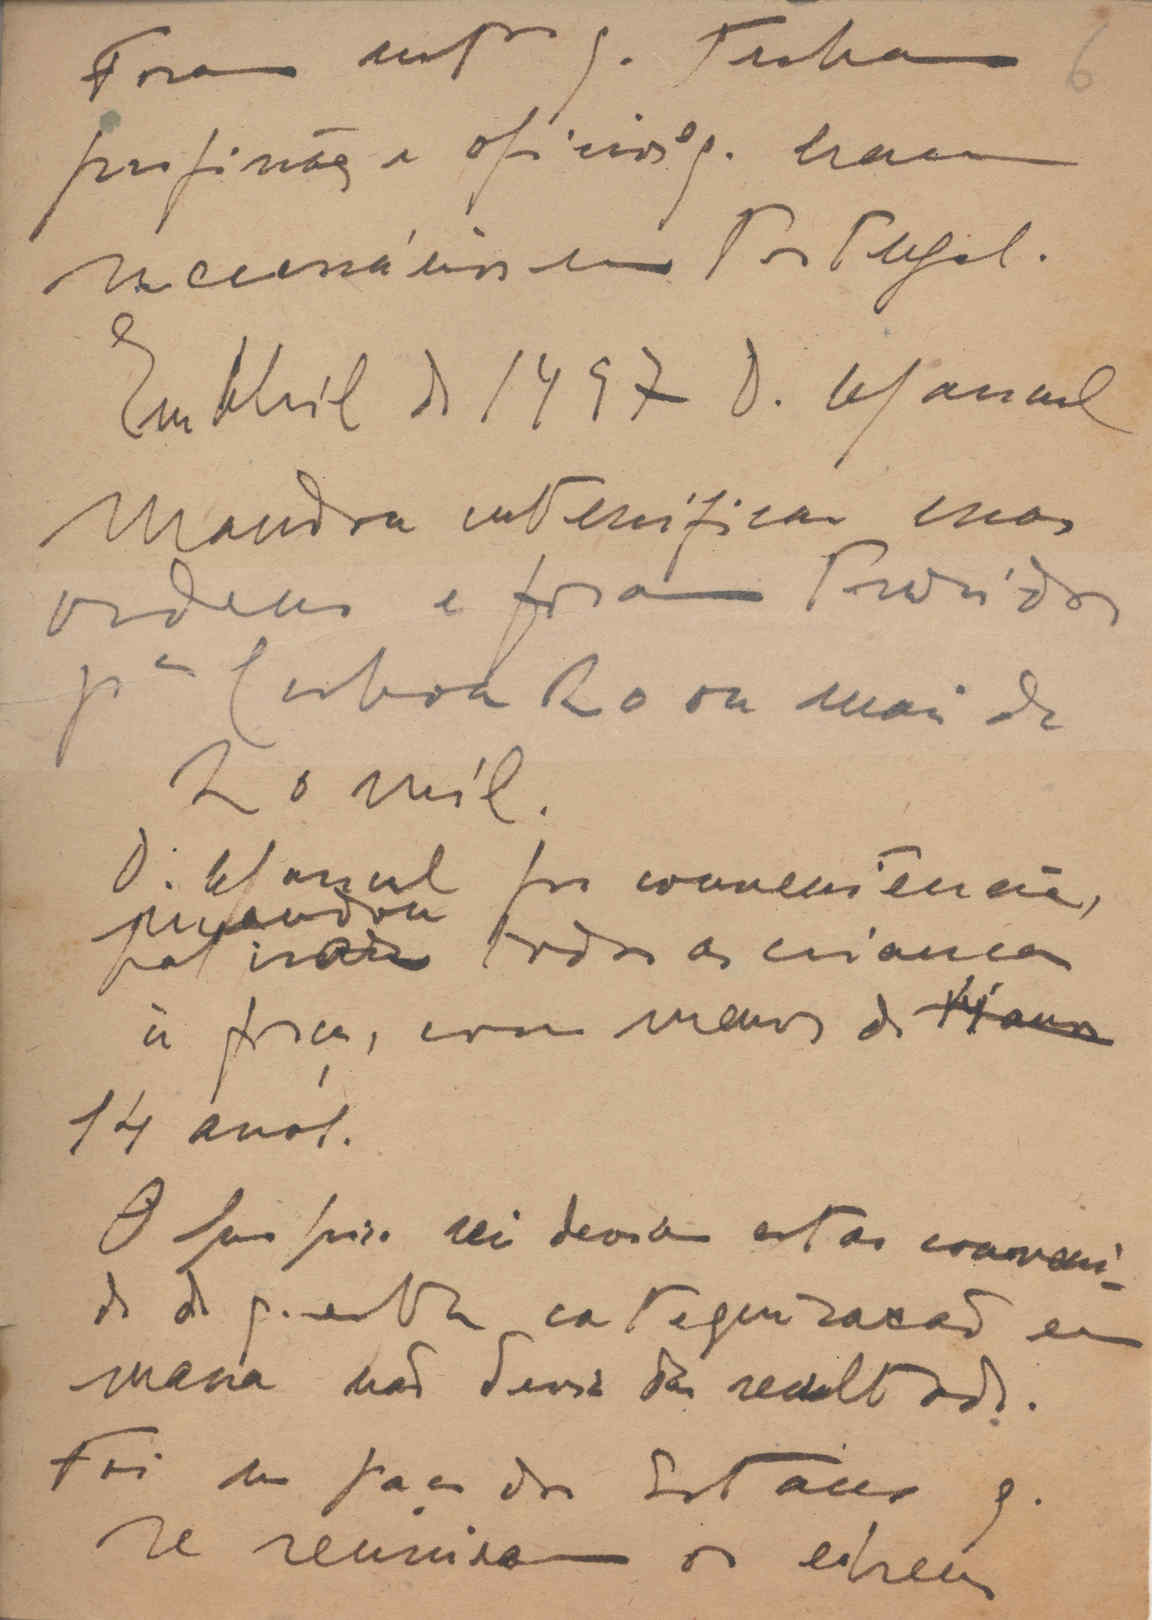 6
Foram estes q. tinham
profissões e oficios q. eram
necessários em Portugal.
Em Abril de 1497 D. Manuel
mandou intensificar essas
ordens e foram trazidos
pª Lisboa 20 ou mais de
20 mil.
D. Manuel por conveniência,
mandou
batisar todos as crianças
à força, com menos de 14 anos
14 anos.
O próprio rei devia estar convenci-
do de q. esta categorização em
massa não devia dar resultado.
Foi no paço dos Estáus q.
se reuniram os ebreus